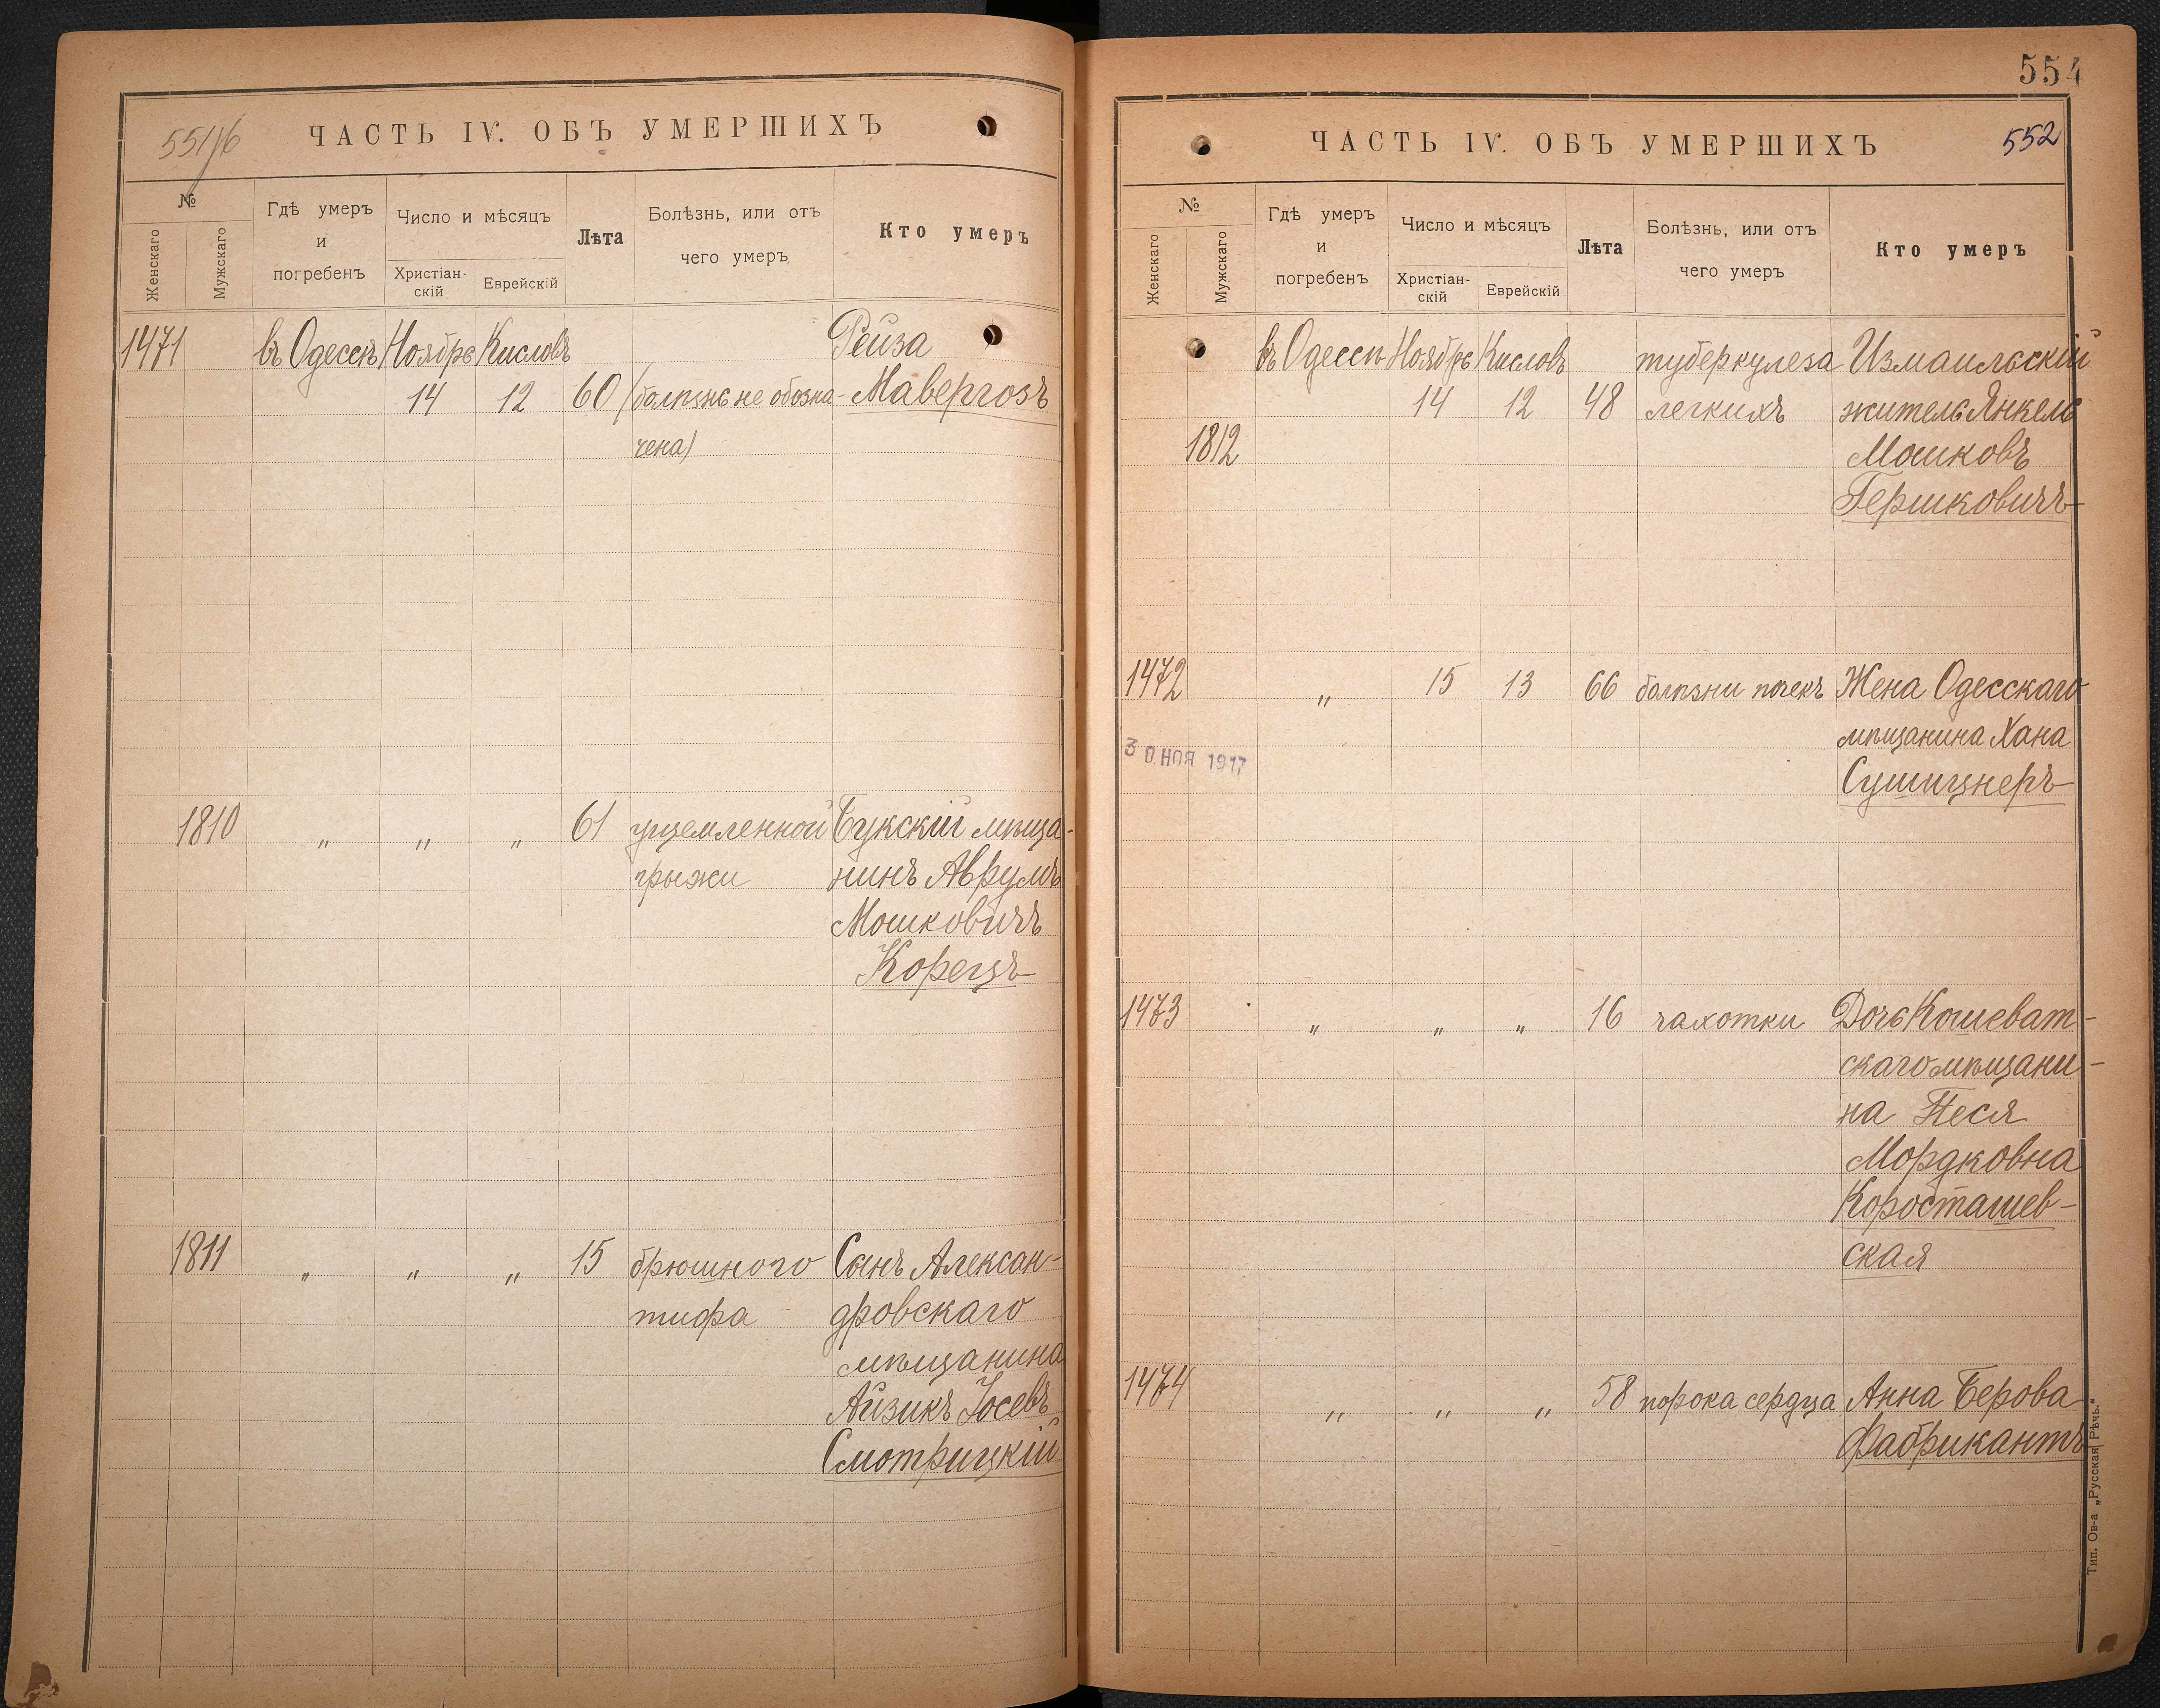 551/б
ЧАСТЬ IV. ОБЪ УМЕРШИХЪ
№
Женскаго
Мужскаго
Гдѣ умеръ
и
погребенъ
Число и мѣсяцъ
Христіан-
скій
Еврейскій
Лѣта
Болѣзнь, или отъ
чего умеръ
Кто умеръ
1471 въ Одессѣ Ноябрь Кисловъ Рейза
14 12 60 (болѣзнь не обозна- Мавергозъ
чена)
1810 „ „ „ 61 ущемленной Букскій мѣща-
грыжи нинъ Аврумъ
Мошковичъ
Корецъ
1811 „ „ „ 15 брюшного Сынъ Алексан-
тифа дровскаго
мѣщанина
Айзикъ Іосевъ
Смотрицкій
554
ЧАСТЬ IV. ОБЪ УМЕРШИХЪ
552
№
Женскаго
Мужскаго
Гдѣ умеръ
и
погребенъ
Число и мѣсяцъ
Христіан-
скій
Еврейскій
Лѣта
Болѣзнь, или отъ
чего умеръ
Кто умеръ
въ Одессѣ Ноябрь Кисловъ туберкулеза Измаильскій
14 12 48 легкихъ житель Янкель
1812 Мошковъ
Гершковичъ
1472 „ 15 13 66 болѣзни почекъ Жена Одесскаго
мѣщанина Хана
30 НОЯ 1917
Сушицнеръ
1473 „ „ „ 16 чахотки Дочь Кошеват-
скаго мѣщани-
на Песя
Мордковна
Коросташев-
ская
1474 „ „ „ 58 порока сердца Анна Берова
Фабрикантъ
Тип. Ов-а „Русская Рѣчь.“